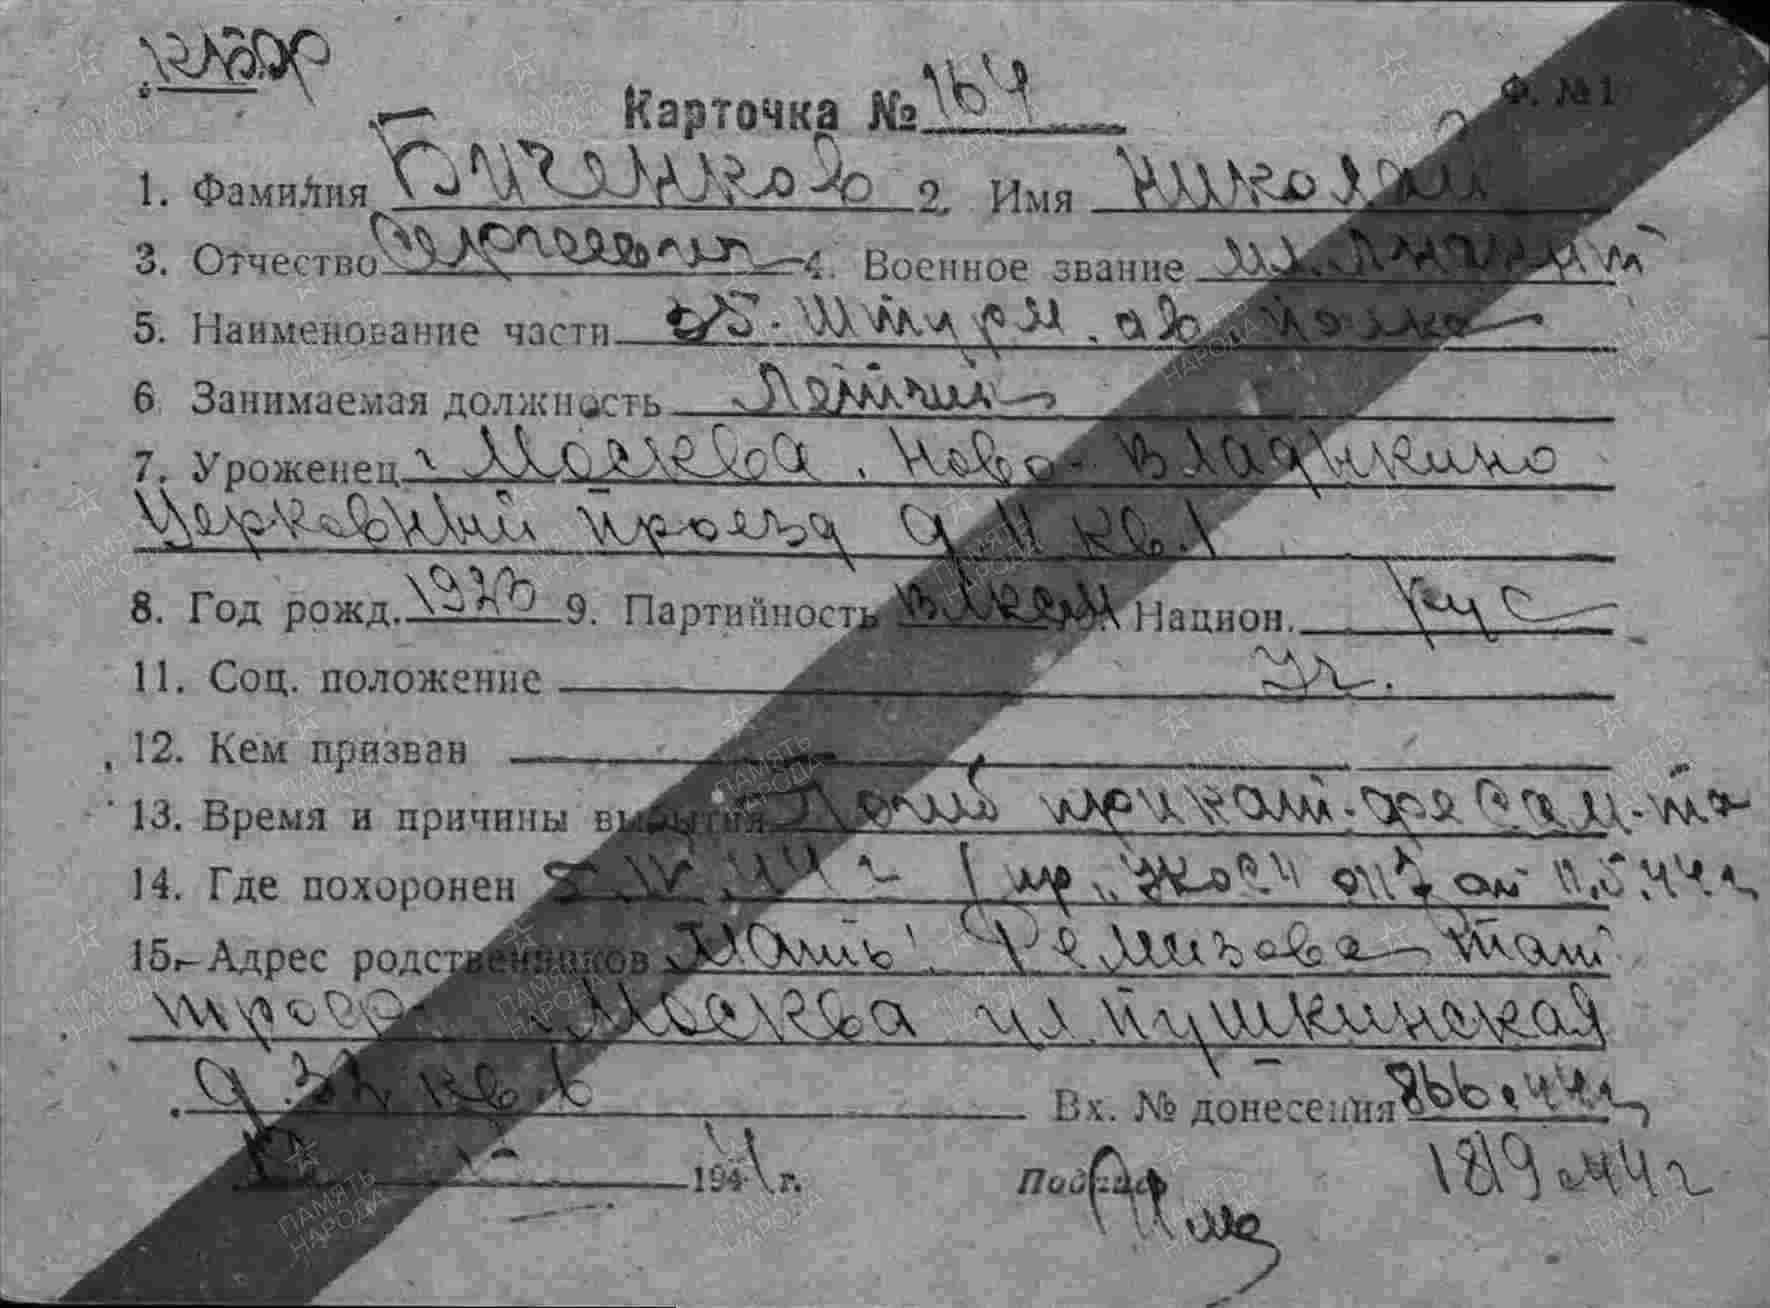 КБФ
Карточка № 164 Ф. №1
1. Фамилия Биченков 2. Имя Николай
3. Отчество Сергеевич 4. Военное звание мл. л-нант
5. Наименование части 35. штурм. ав. полка
6. Занимаемая должность Летчик
7. Уроженец г Москва. Ново-Владыкино
Церковный проезд д 11 кв. 1
8. Год рожд. 1923 9. Партийность ВЛКСМ Национ. рус
11. Соц. положение Уч.
12. Кем призван
13. Время и причины выбытия Погиб при кат-фе сам-та
14. Где похоронен 44 г (пр от 11.5.44 г
15. Адрес родственников Мать: Ремизова
Москва ул. Пушкинская
д. 32 кв. 6 Вх. № донесения 866.44г
194 г. Подпись 1819.44 г
ПАМЯТЬ НАРОДА